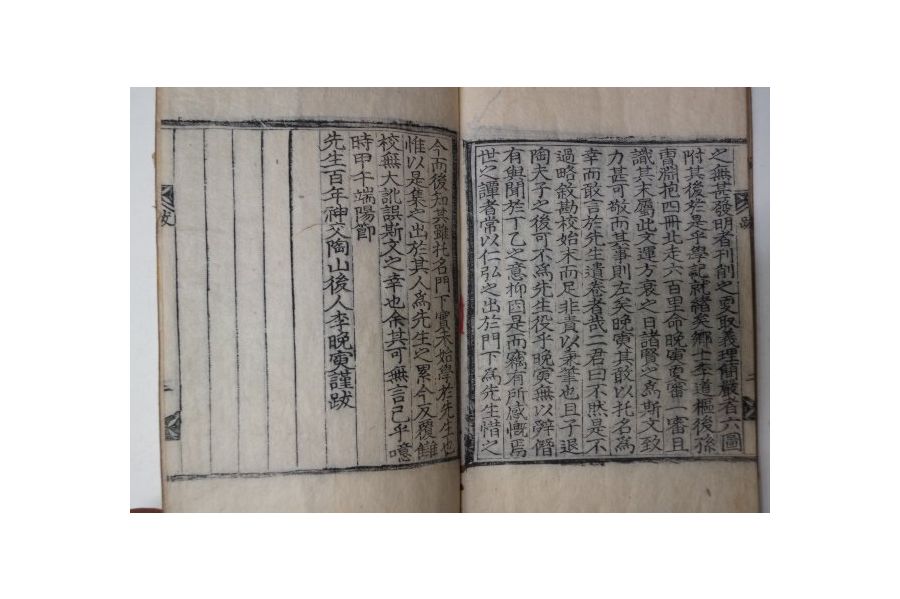 之無甚發明者刊削之更取義理簡嚴者六圖
附其後於是乎學記就緒矣鄉士李道樞後孫
曺淵抱四冊北走六百里命晚寅更審一審且
識其末屬此文運方衰之日諸賢之爲斯文致
力甚可敬而其事則左矣晚寅其敢以托名爲
幸而敢言於先生遺卷者哉二君曰不然是不
過略敘勘校始末而足非責以秉筆也且子退
陶夫子之後可不爲先生役乎晚寅無以辭僭
有與聞於丁乙之意抑因是而竊有所感慨焉
世之譚者常以仁弘之出於門下爲先生惜之
跋
今而後知其雖托名門下實未始學於先生也
惟以是集之出於其人爲先生之累今反覆讎
校無大訛誤斯文之幸也余其可無言已乎噫
時甲午端陽節
先生百年神交陶山後人李晚寅謹跋